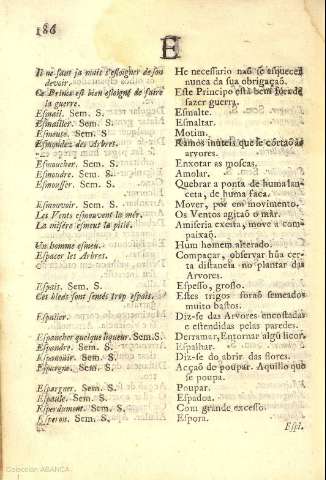 186
E
Il ne faut ja mais s'esloigner de son
devoir.
Ce Prince est bien esloigné de faire
la guerre.
Esmail. Sem. S.
Esmailler. Sem. S.
Esmeute. Sem. S
Esmondez des Arbres.
Esmoucher. Sem. S.
Esmondre. Sem. S.
Esmousser. Sem. S.
Esmouvoir. Sem. S.
Les Vents esmouvent la mér.
La misére esmeut la pitié.
Un homme esmeu.
Espacer les Arbres.
Espais. Sem. S.
Ces bleds sont semés trop espais.
Espalier.
Espancher quelque liqueur. Sem. S.
Espandre. Sem. S.
Espanouir. Sem. S.
Espargne. Sem. S.
Espargner. Sem. S.
Espaule. Sem. S.
Esperdument. Sem. S.
Esperon. Sem. S.
He necessario naõ se esquecer
nunca da sua obrigaçaõ.
Este Principe está bem fóra de
fazer guerra.
Esmalte.
Esmaltar.
Motim.
Ramos inuteis que se córtaõ às
arvores.
Enxotar as moscas.
Amolar.
Quebrar a ponta de huma lan-
ceta, de huma faca.
Mover, por em movimento.
Os Ventos agitaõ o mâr.
A miseria excita, move a com-
paixaõ.
Hum homem alterado.
Compaçar, observar hũa cer-
ta distancia no plantar das
Arvores.
Espesso, grosso.
Estes trigos foraõ semeados
muito bastos.
Diz-se das Arvores encostadas
e estendidas pelas paredes.
Derramar, Entornar algũ licor.
Espalhar.
Diz-se do abrir das flores.
Acçaõ de poupar. Aquillo que
se poupa.
Poupar.
Espadoa.
Com grande excesso.
Espora.
Espi.
Colección ABANCA